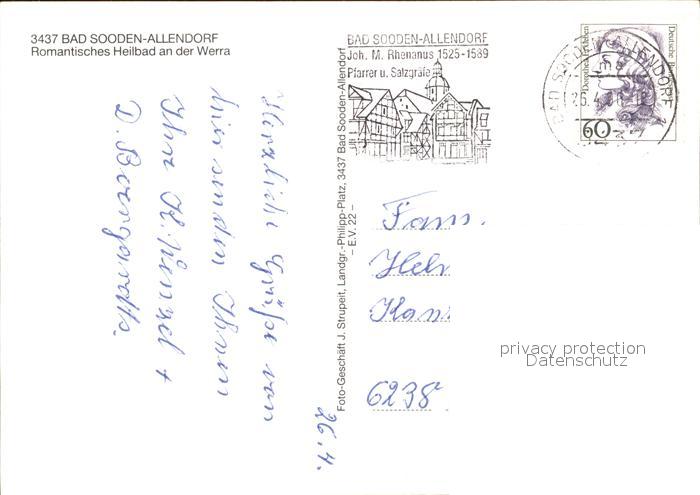 3437 BAD SOODEN-ALLENDORF
Romantisches Heilbad an der Werra
BAD SOODEN-ALLENDORF
Joh. M. Rhenanus 1525-1589
Pfarrer u. Salzgräfe
BAD SOODEN-ALLENDORF
Deutsche Bundespost
Dorothea Erxleben
60
Herzliche Grüße von
hier senden Ihnen
Ihre H. +
D.
26.4.
Foto-Geschäft J. Strupeit, Landgr.-Philipp-Platz, 3437 Bad Sooden-Allendorf
– E.V. 22 –
Fam.
6238
privacy protection
Datenschutz